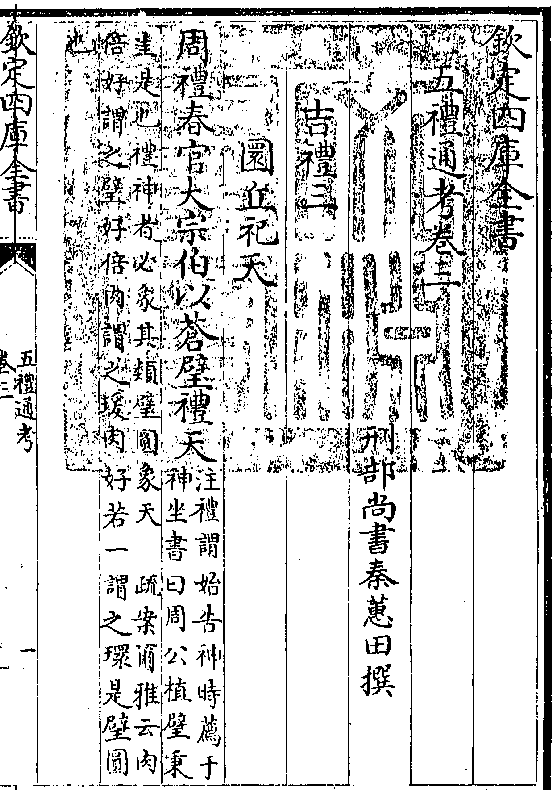 欽定四庫全書
五禮通考卷三
刑部尚書秦蕙田撰
吉禮三
圜丘祀天
周禮春官大宗伯以蒼璧禮天
注禮謂始告神時薦于
神坐書曰周公植璧秉
圭是也禮神者必象其類璧圓象天 疏案爾雅云肉
倍好謂之璧好倍肉謂之瑗肉好若一謂之環是璧圓
也
欽定四庫全書
五禮通考
卷三
一